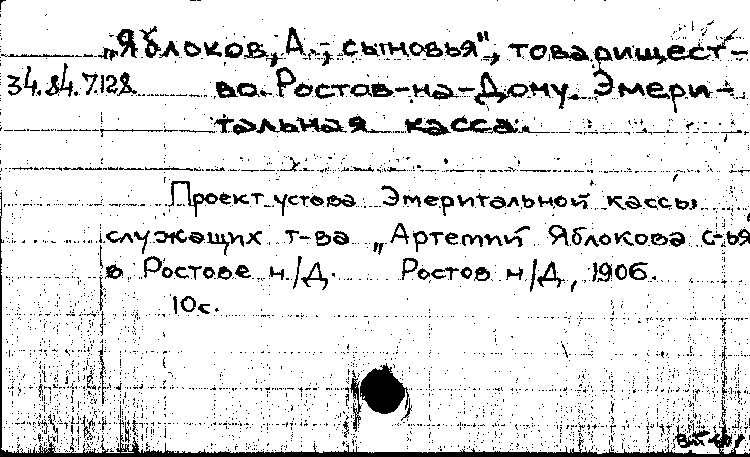 „Яблоков, А., сыновья", товарищест-
34.84.7.128. во. Ростов-на-Дону. Эмери-
тальная касса.
Проект устава Эмеритальной кассы
служащих т-ва „Артемий Яблокова с-ья
в Ростове н/Д. Ростов н/Д, 1906.
10с.